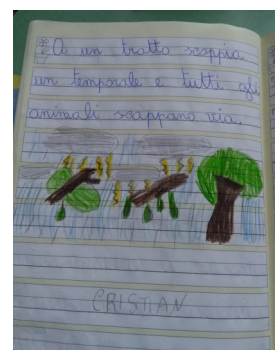 A un tratto scoppia
un temporale e tutti gli
animali scappano via.
CRISTIAN